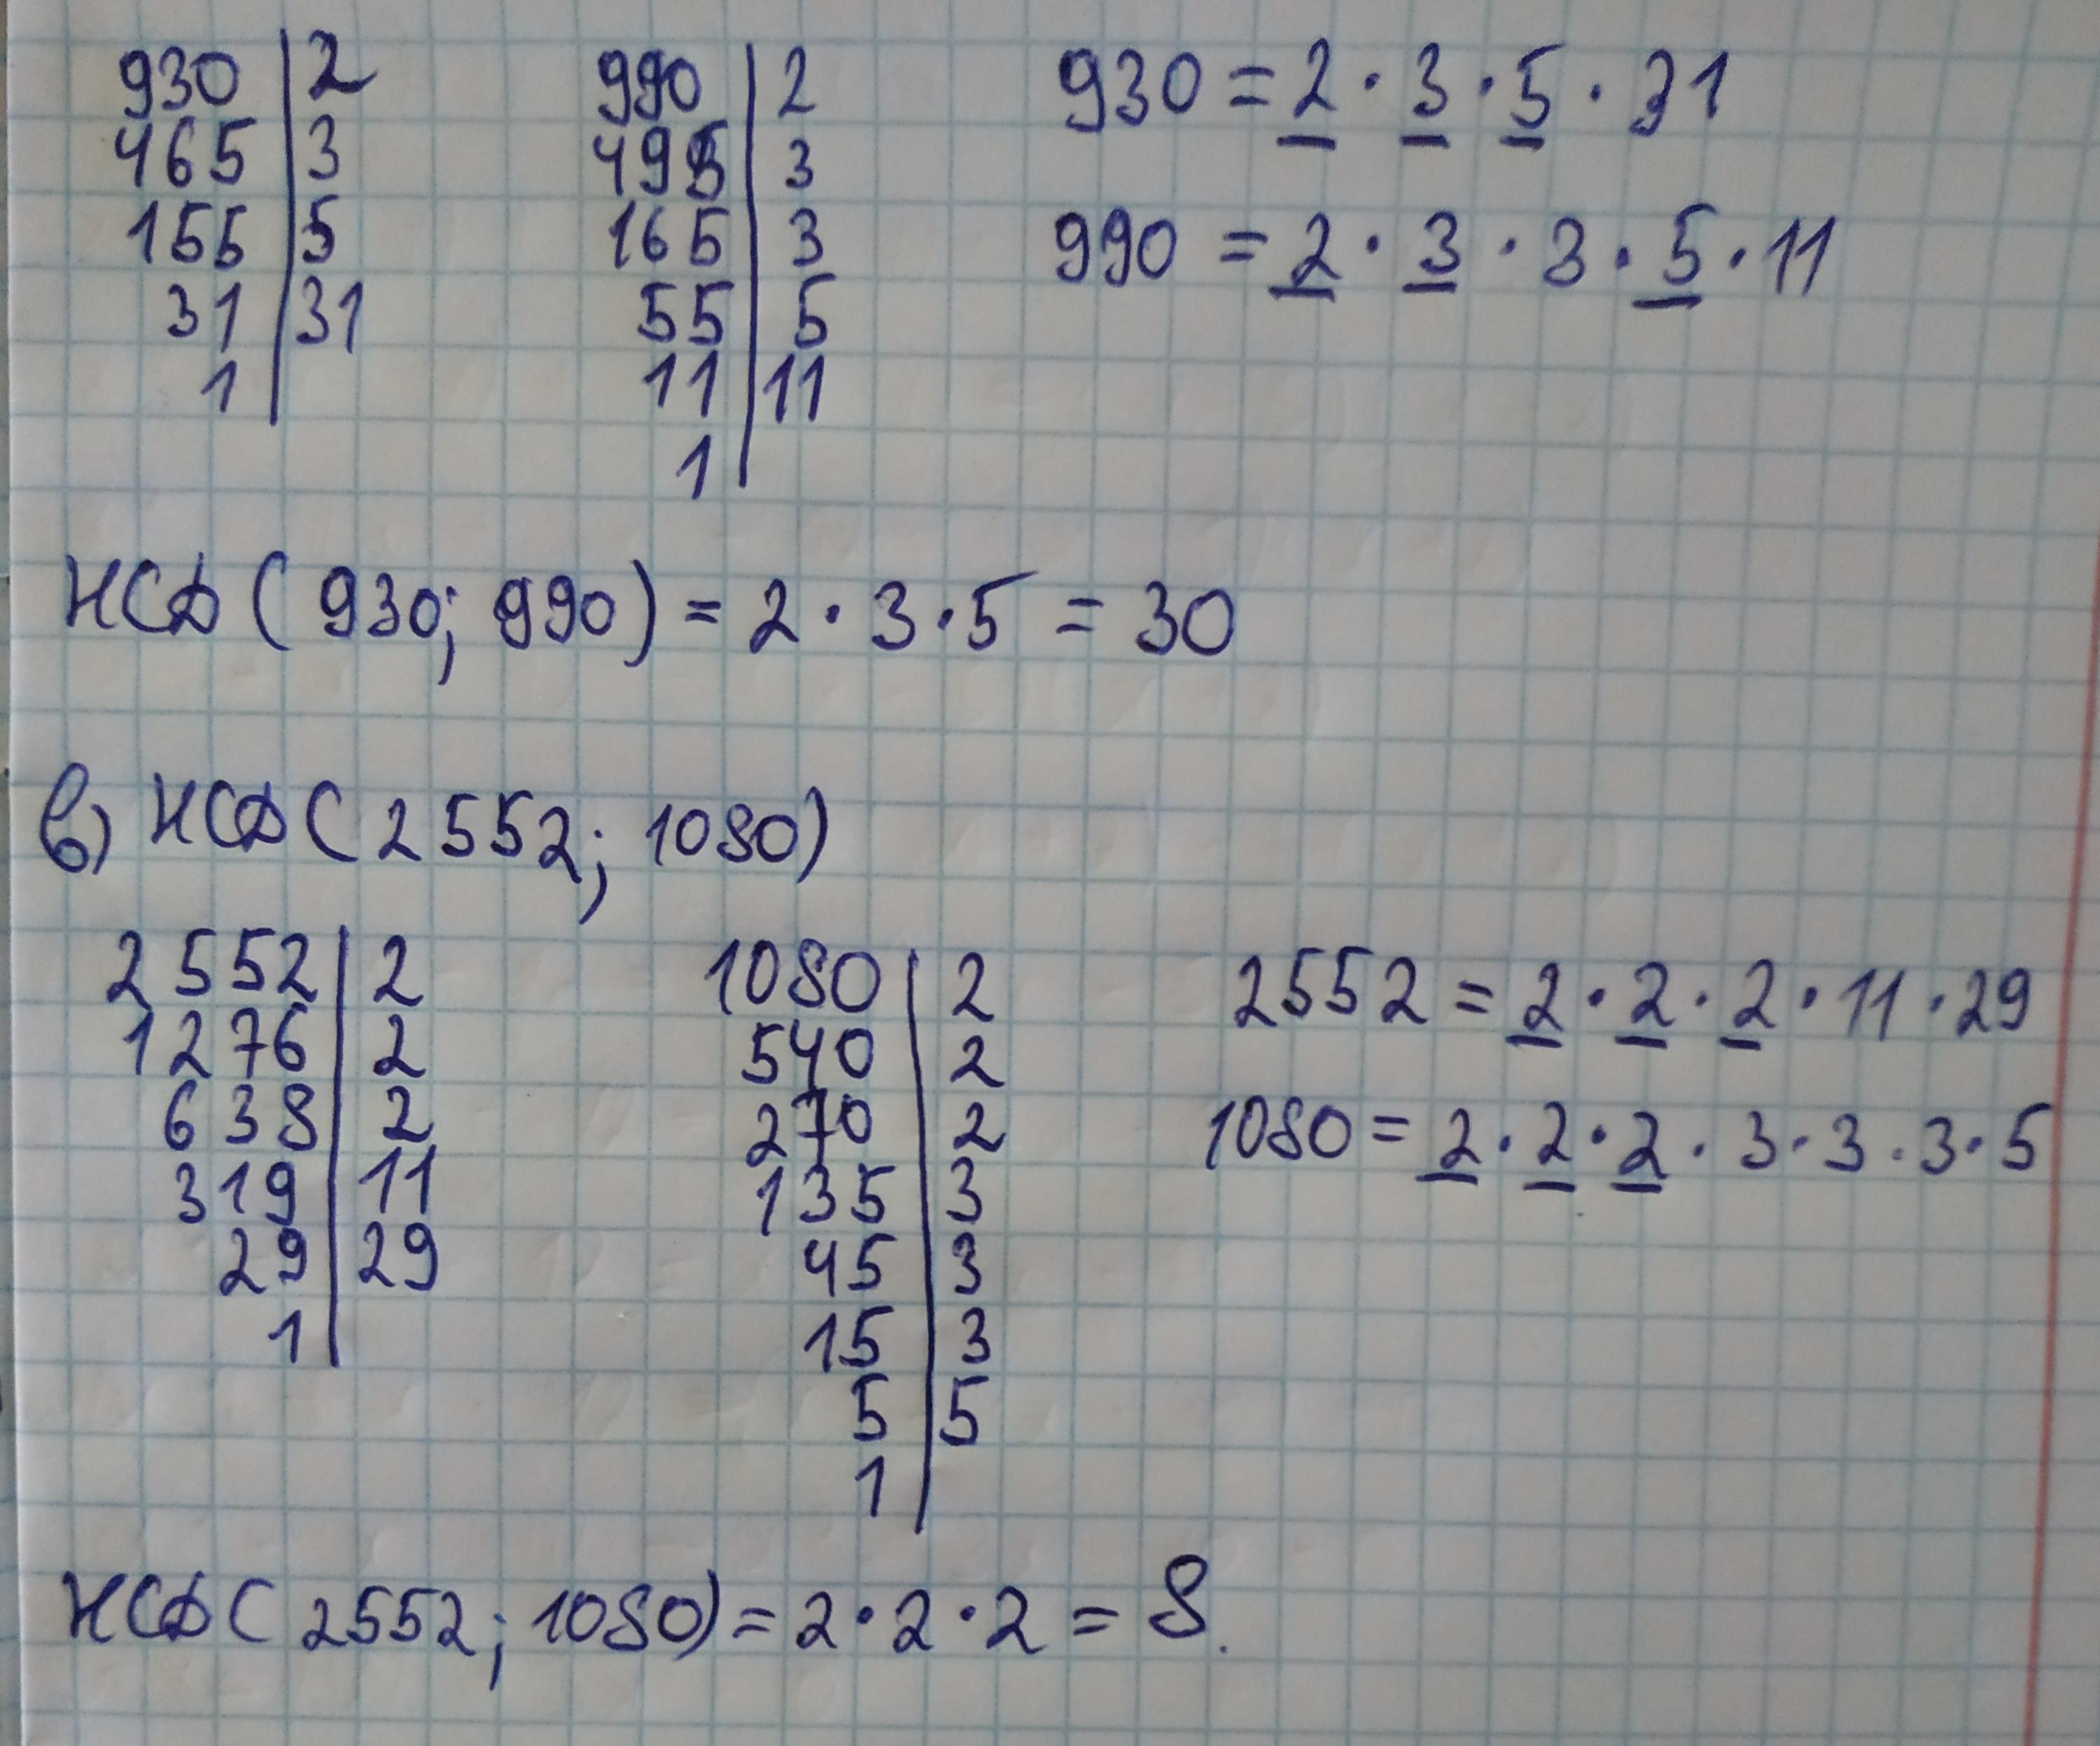 930 | 2 990 | 2 930 = 2 · 3 · 5 · 31
465 | 3 495 | 3
155 | 5 165 | 3 990 = 2 · 3 · 3 · 5 · 11
31 | 31 55 | 5
1 | 11 | 11
1 |
НСД ( 930; 990 ) = 2 · 3 · 5 = 30
в) НСД ( 2552; 1080 )
2552 | 2 1080 | 2 2552 = 2 · 2 · 2 · 11 · 29
1276 | 2 540 | 2
638 | 2 270 | 2 1080 = 2 · 2 · 2 · 3 · 3 · 3 · 5
319 | 11 135 | 3
29 | 29 45 | 3
1 | 15 | 3
5 | 5
1 |
НСД ( 2552; 1080 ) = 2 · 2 · 2 = 8.